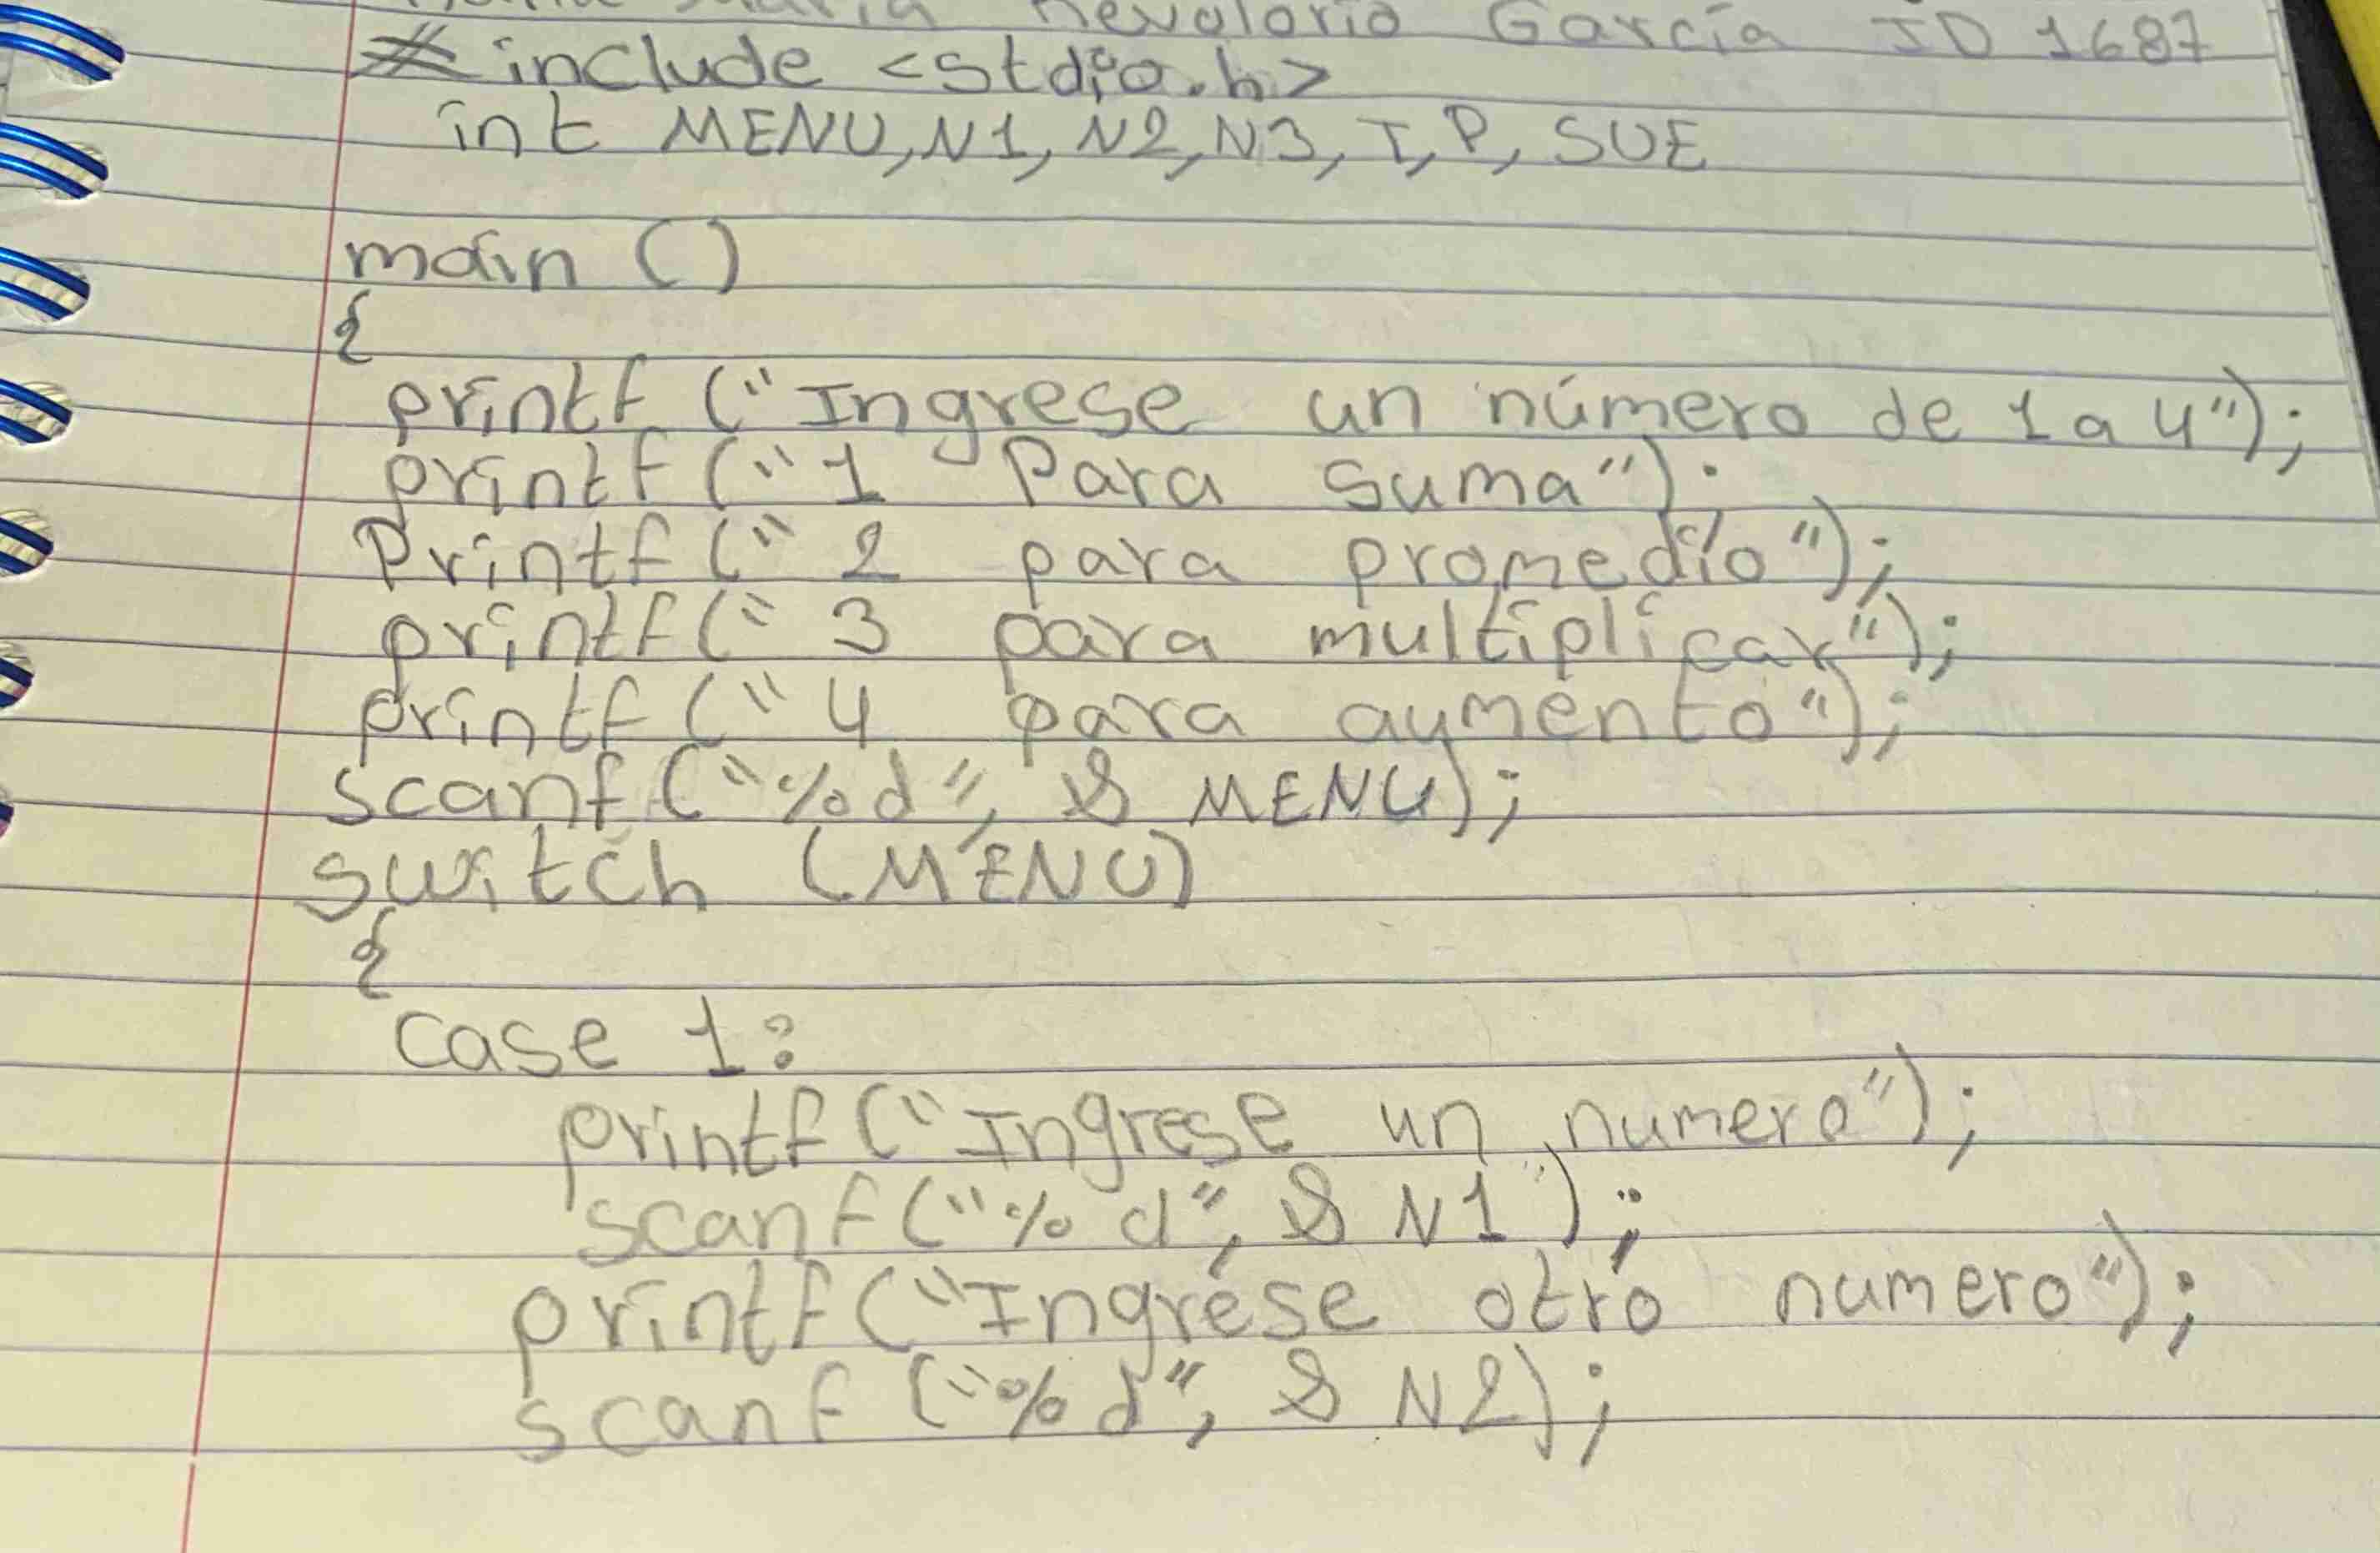 María García ID 1687
# include <stdio.h>
int MENU, N1, N2, N3, I, P, SUE
main ()
{
printf ("Ingrese un número de 1 a 4");
printf ("1 Para suma");
Printf (" 2 para promedio");
printf (" 3 para multiplicar");
printf (" 4 para aumento");
scanf ("%d", & MENU);
switch (MENU)
{
case 1:
printf ("Ingrese un numero");
scanf ("% d", & N1);
printf ("Ingrese otro numero");
scanf ("% d", & N2);